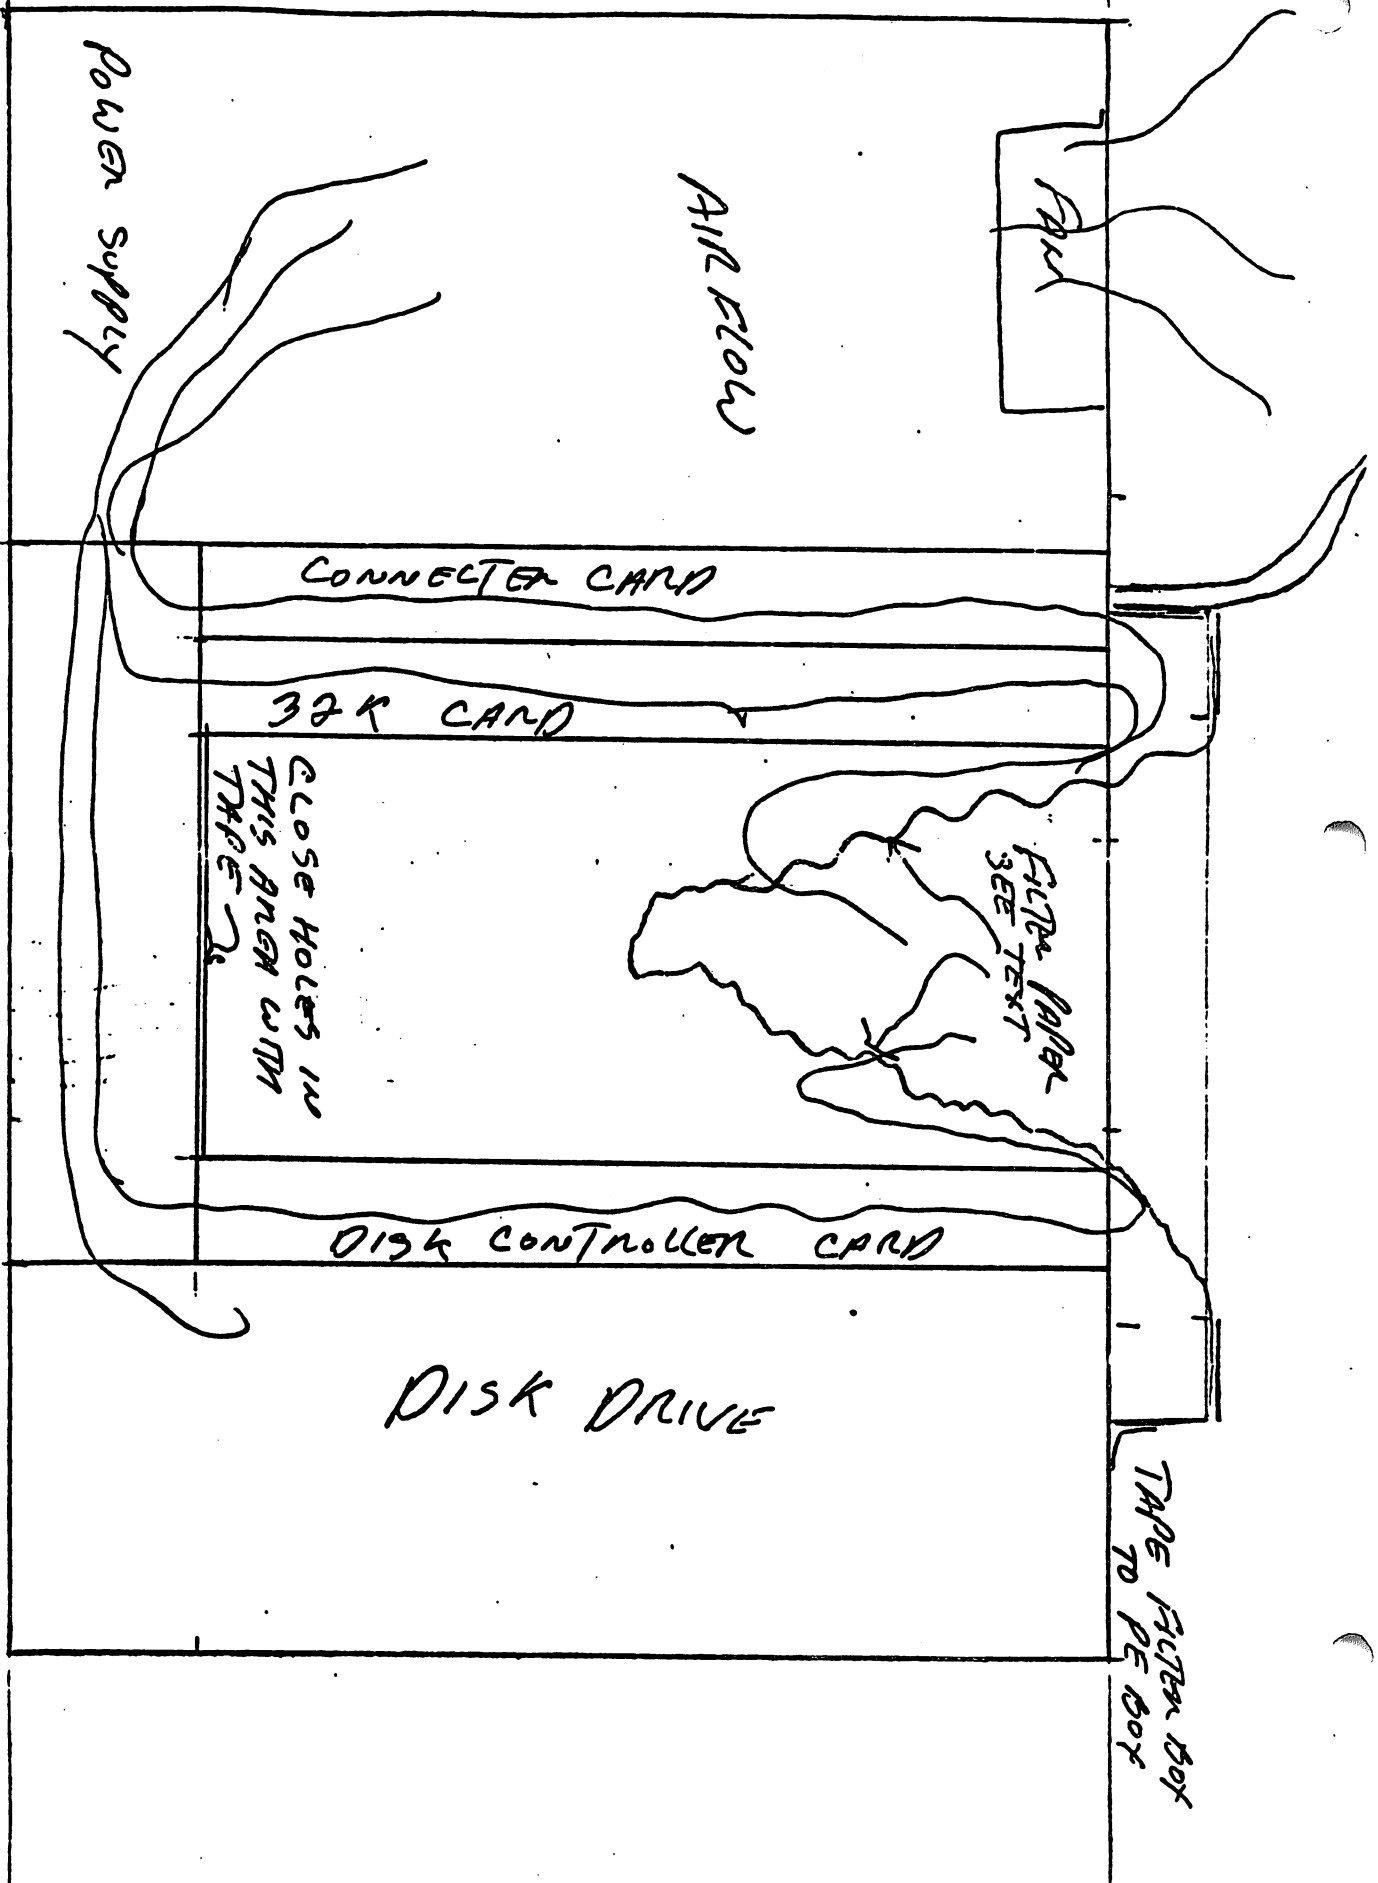 POWER SUPPLY
AIR FLOW
FAN
CONNECTER CARD
32K CARD
CLOSE HOLES IN
THIS AREA WITH
TAPE
FILTER PAPER
SEE TEXT
DISK CONTROLLER CARD
DISK DRIVE
TAPE FILTER BOX
TO PE BOX